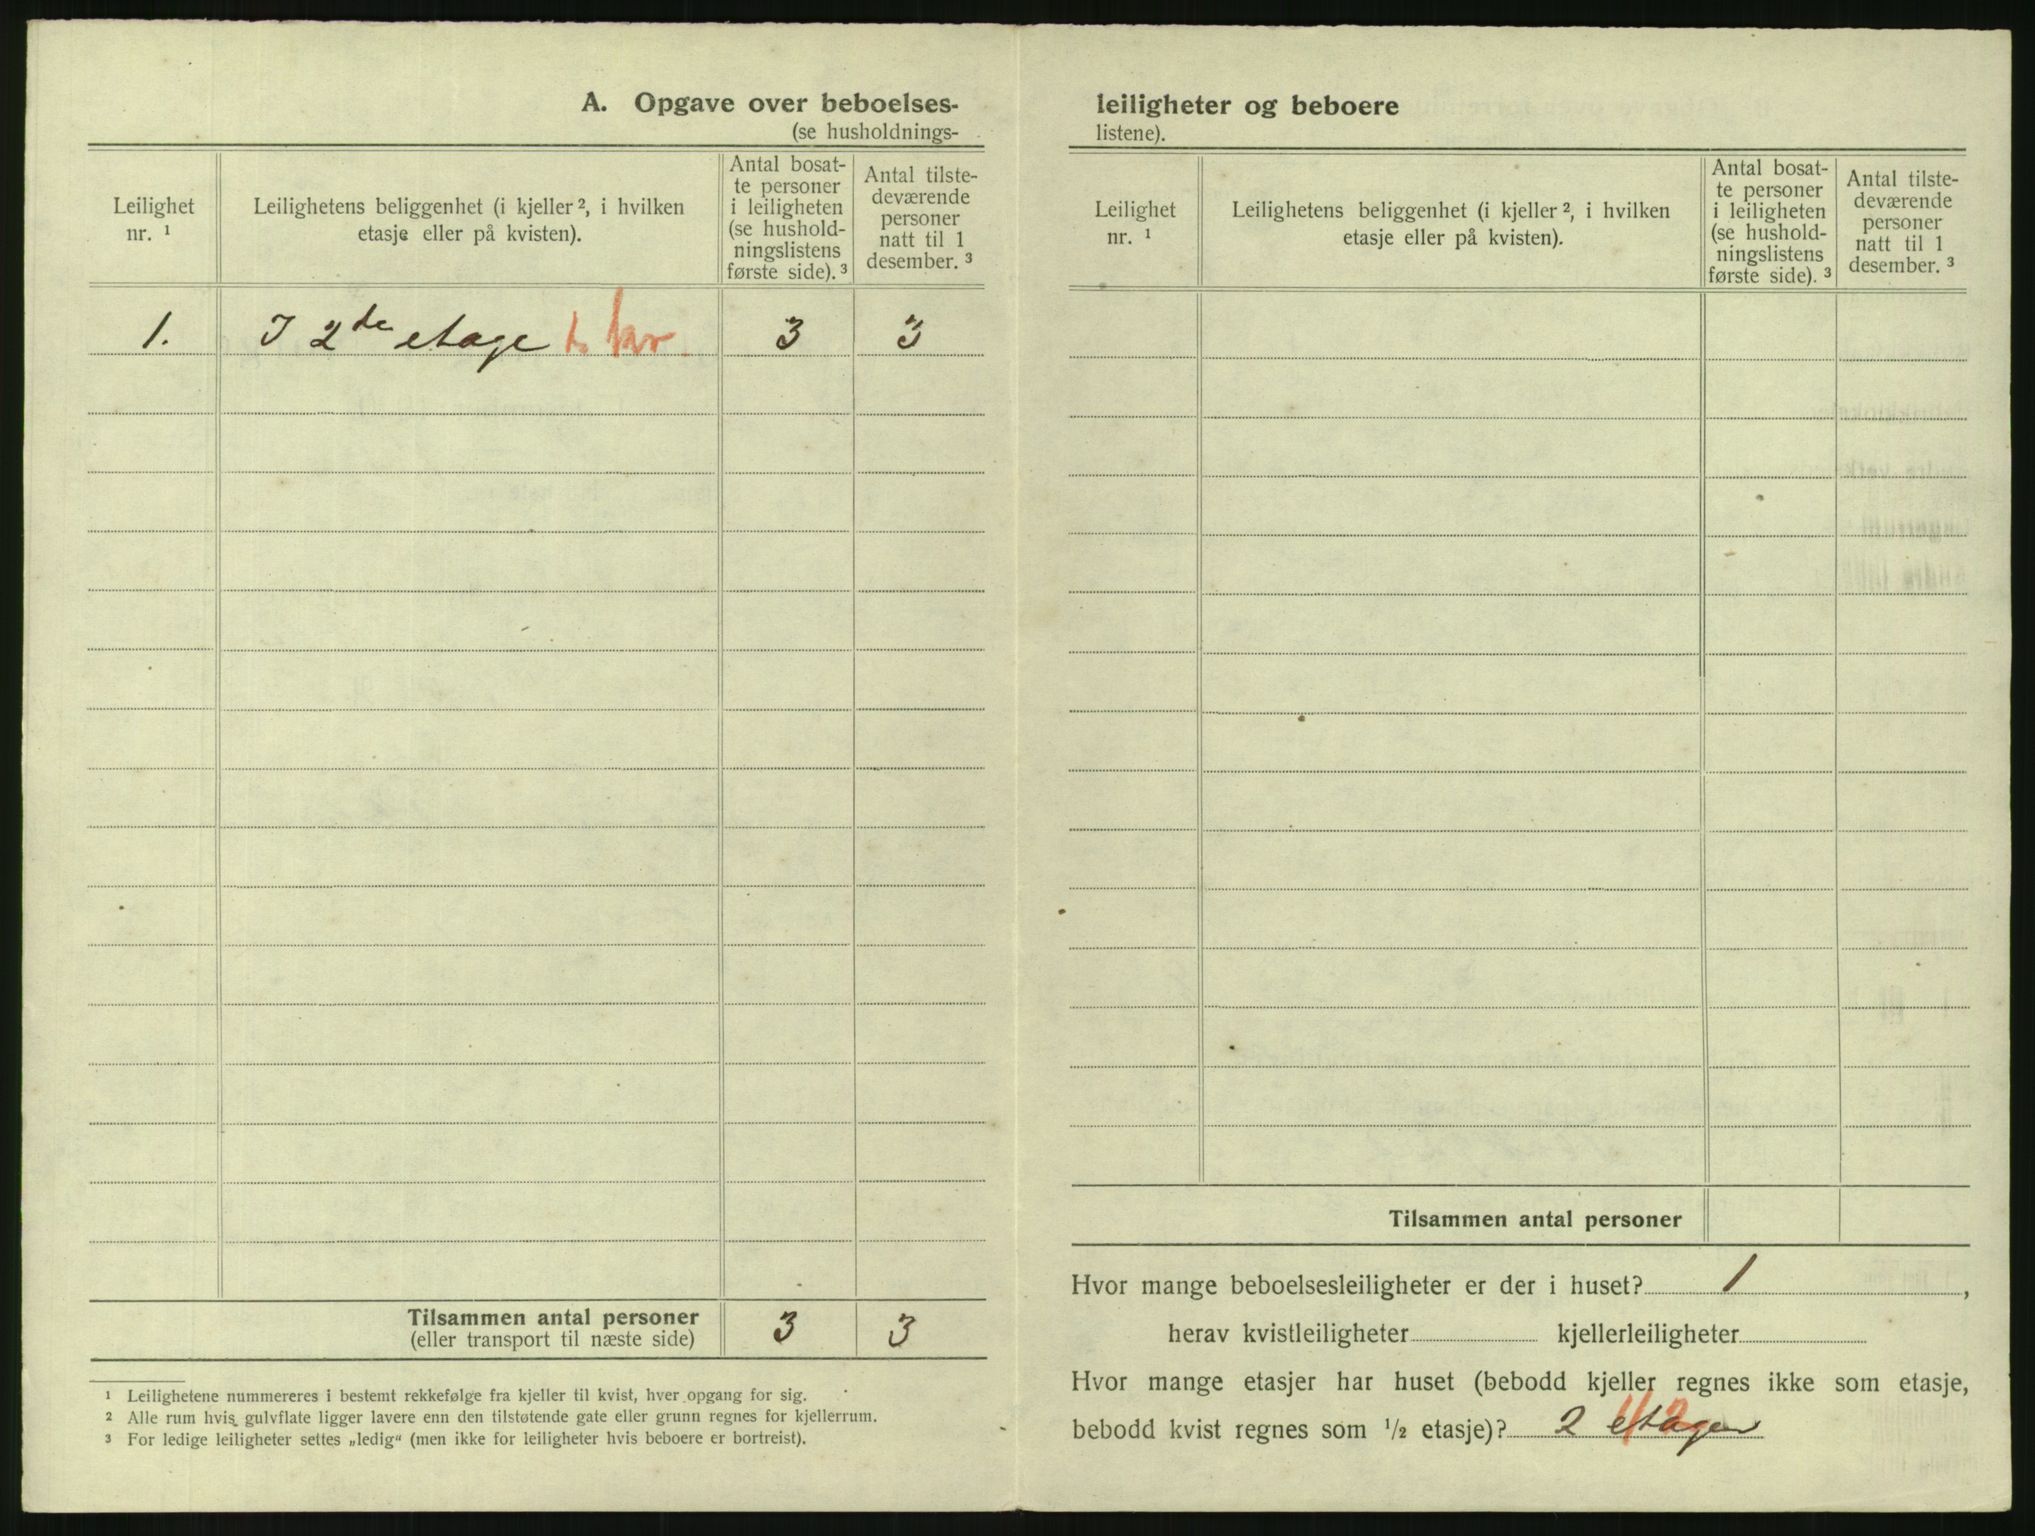 A. Opgave over beboelses-
(se husholdnings-
Leilighet
nr. ¹
Leilighetens beliggenhet (i kjeller ², i hvilken
etasje eller på kvisten).
Antal bosat-
te personer
i leiligheten
(se hushold-
ningslistens
første side). ³
Antal tilste-
deværende
personer
natt til 1
desember. ³
1. I 2de etage 3 3
Tilsammen antal personer 3 3
(eller transport til næste side)
¹ Leilighetene nummereres i bestemt rekkefølge fra kjeller til kvist, hver opgang for sig.
² Alle rum hvis gulvflate ligger lavere enn den tilstøtende gate eller grunn regnes for kjellerrum.
³ For ledige leiligheter settes „ledig“ (men ikke for leiligheter hvis beboere er bortreist).
leiligheter og beboere
listene).
Leilighet
nr. ¹
Leilighetens beliggenhet (i kjeller ², i hvilken
etasje eller på kvisten).
Antal bosat-
te personer
i leiligheten
(se hushold-
ningslistens
første side). ³
Antal tilste-
deværende
personer
natt til 1
desember. ³
Tilsammen antal personer
Hvor mange beboelsesleiligheter er der i huset? 1,
herav kvistleiligheter kjellerleiligheter
Hvor mange etasjer har huset (bebodd kjeller regnes ikke som etasje,
bebodd kvist regnes som ½ etasje)? 2 etager